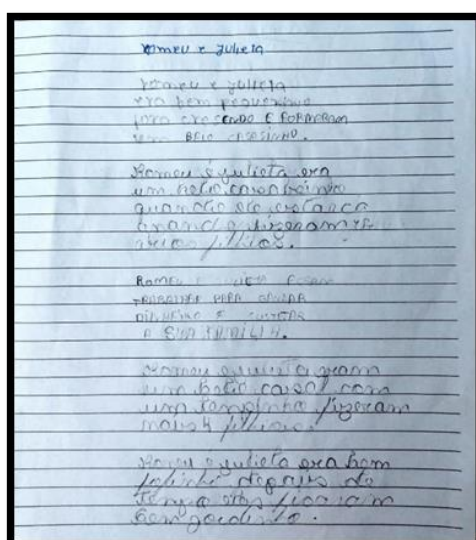 Romeu e Julieta
Romeu e Julieta
era bem pequenino
foro crescendo E FORMARAM
um BElO CASASINHO.
Romeu e julieta era
um belio casal
quando ele estanca
fizeram
filhios.
ROMEU FORAM
TRABALHAR PARA GANHAR
DINHEIRO E
A SUA FAMÍLIA.
Romeu e julieta eram
um belio casal com
um tempinho fizeram
mais 4 filhios.
Romeu e julieta era bem
depois do
tempo eles ficaram
bem gordinho.